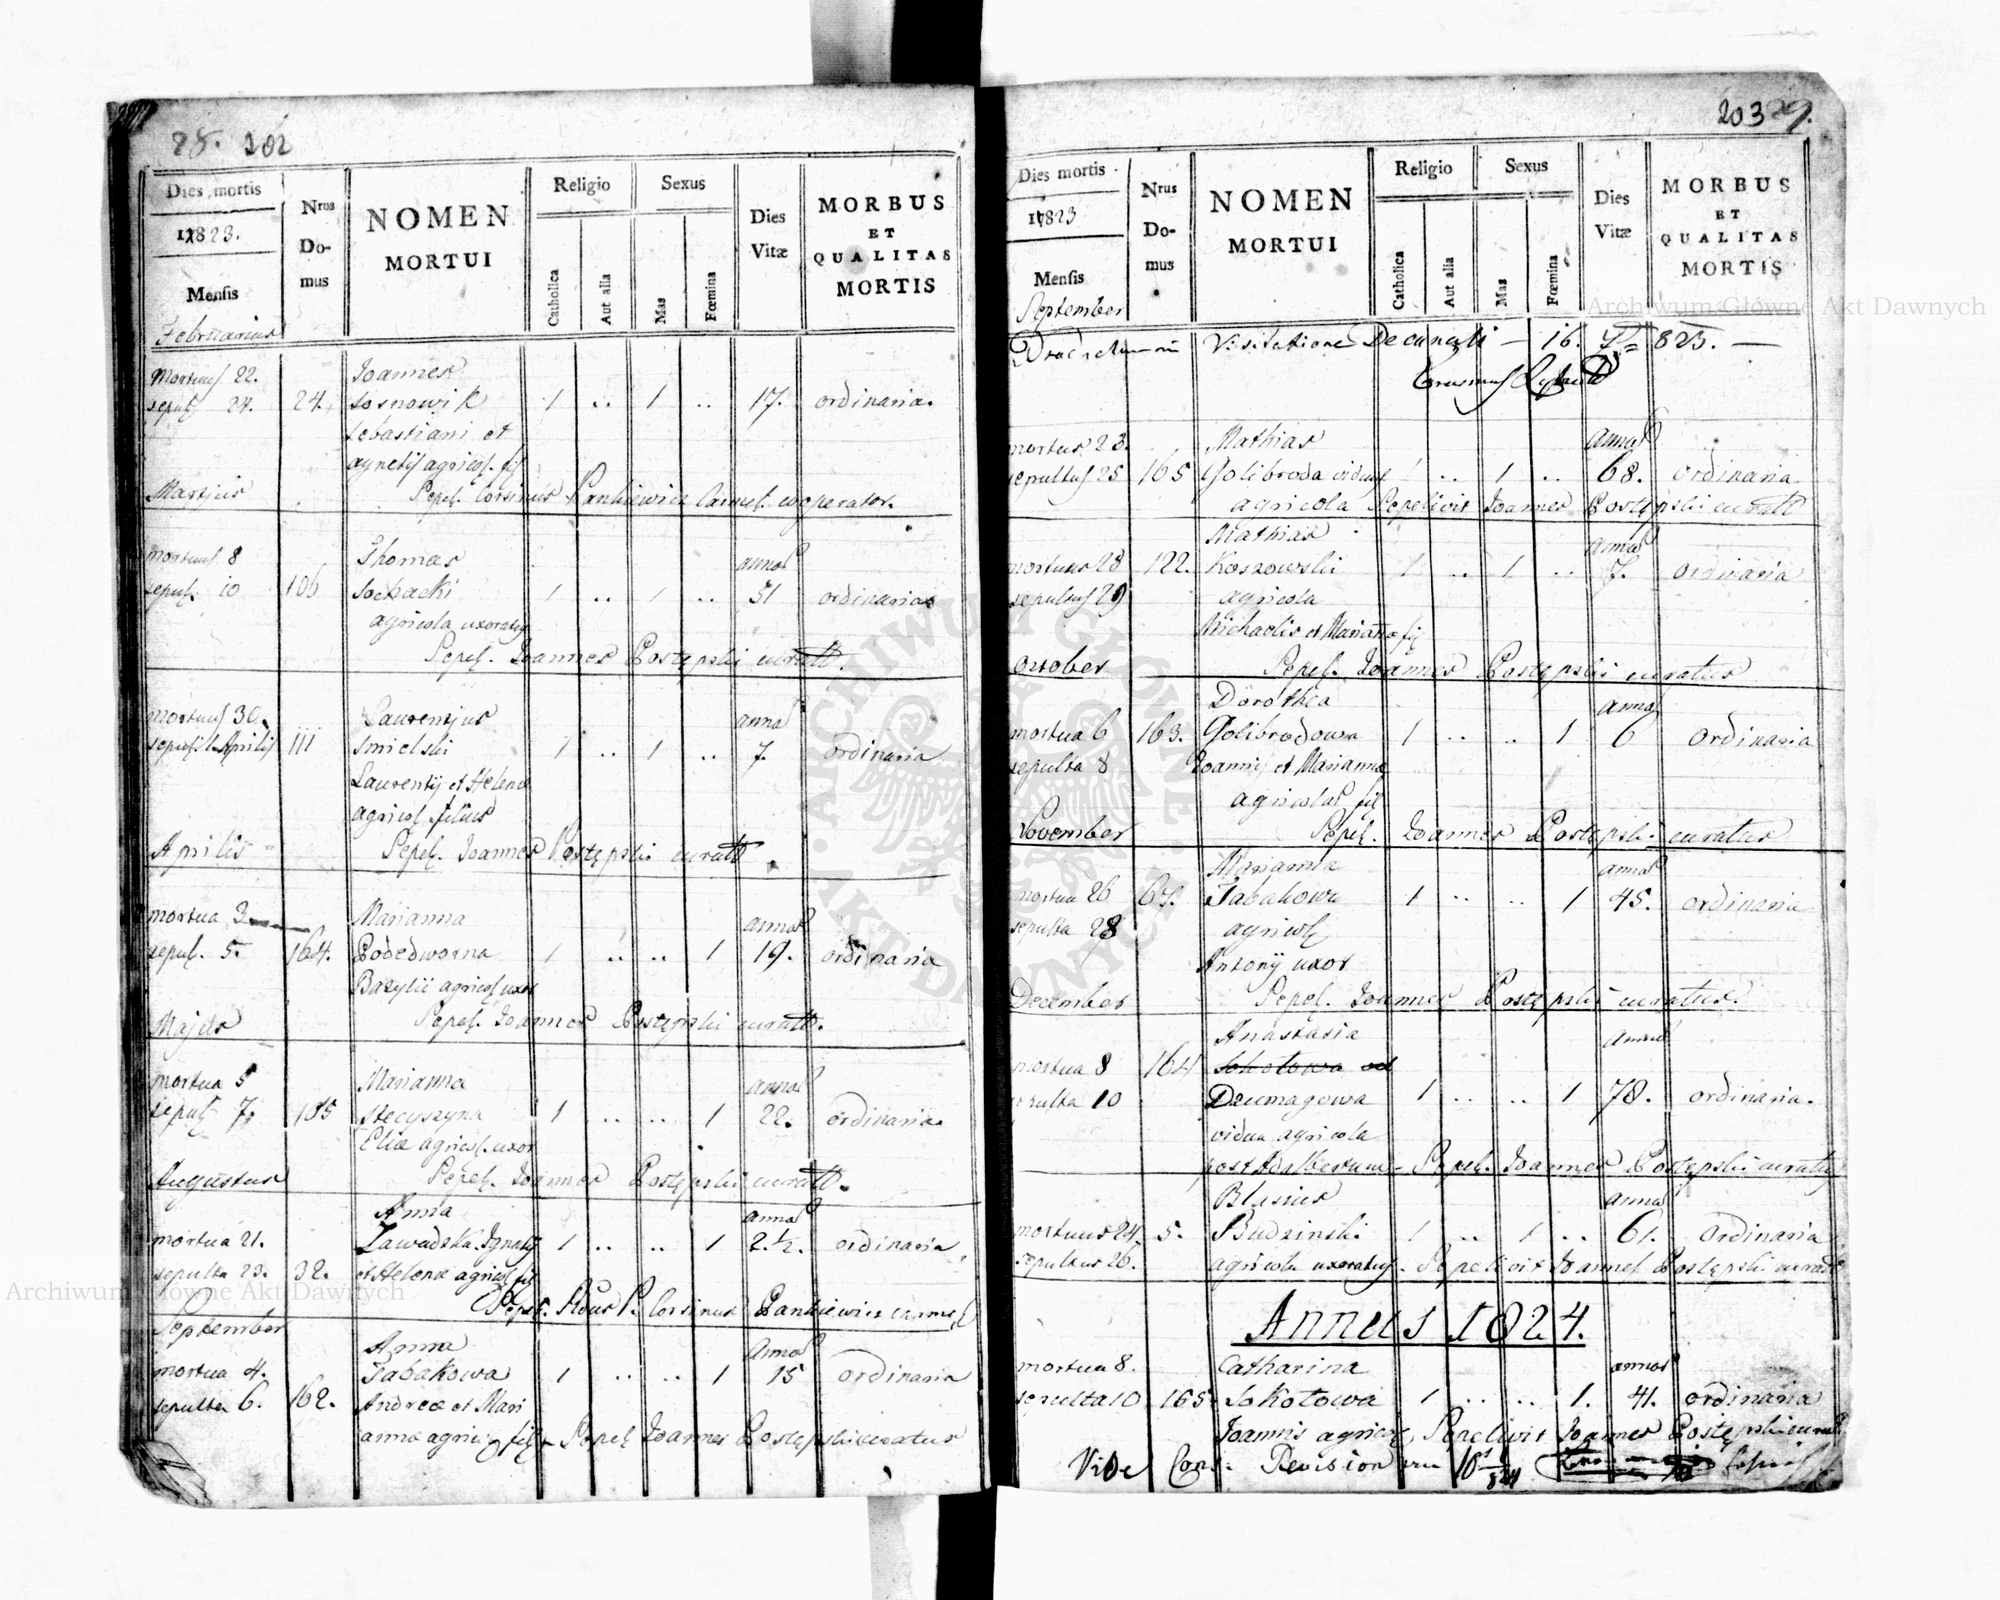 28. 202
Dies mortis
1823.
Mensis
Nrus
Do-
mus
NOMEN
MORTUI
Religio
Catholica
Aut alia
Sexus
Mas
Fœmina
Dies
Vitæ
MORBUS
ET
QUALITAS
MORTIS
Februarius
Mortuus 22. Joannes
sepul. 24. 24. Sosnowik 1 .. 1 .. 17. ordinaria.
Sebastiani et
Agnetis agricol. fil
Martjus Sepel. Corsinus Pankiewicz Carmel. cooperator.
mortuus 8 Thomas annos
sepul. 10 106 Sochacki 1 .. 1 .. 51 ordinaria
agricola uxoratus
Sepel. Joannes Postępski curatt.
mortuus 30. Laurentjus annos
sepul. 1 Aprilis 111 Smielski 1 .. 1 .. 7. ordinaria
Laurentij et Helena
agricol. filius
Aprilis Sepel. Joannes Postępski curatt
mortua 3 Marianna annos
sepul. 5. 164. Podedworna 1 .. .. 1 19. ordinaria
Bazylii agricol uxor
Majus Sepel. Joannes Postępski curatt.
mortua 5 Marianna annos
sepul 7. 105 Stecyszyna 1 .. .. 1 22. ordinaria
Eliæ agricol. uxor
Augustus Sepel. Joannes Postępski curatt.
Anna annos
mortua 21. Zawadska Ignatij 1 .. .. 1 2.½. ordinaria
sepulta 23. 32. et Helenæ agricol fil
Sepel. Rdus P. Corsinus Pankiewicz carmel
September Anna Annos
mortua 4. Tabakowa 1 .. .. 1 15 ordinaria
sepulta 6. 162. Andreæ et Mari
annæ agricol fil Sepel Joannes Postępski curatus
203 29.
Dies mortis
1823
Mensis
Nrus
Do-
mus
NOMEN
MORTUI
Religio
Catholica
Aut alia
Sexus
Mas
Fœmina
Dies
Vitæ
MORBUS
ET
QUALITAS
MORTIS
September
Visitatione Decanali — 16. 823. —
mortuus 23. Mathias annos
sepultus 25 165 Golibroda viduus 1 .. 1 .. 68. ordinaria
agricola Sepelivit Joannes Postępski curatt
Mathias annos
mortuus 28 122. Koszowski 1 .. 1 .. 7. ordinaria
sepultus 29 agricola
Michaelis et Marianna fil
October Sepel. Joannes Postępski curatus
Dorothea annos
mortua 6 163. Golibrodowa 1 .. .. 1 6 ordinaria
sepulta 8 Joannis et Marianna
agricolas fil
November Sepel. Joannes Postępski curatus
Marianna annos
mortua 26 67. Tabakowa 1 .. .. 1 45. ordinaria
sepulta 28 agricol
Antonij uxor
December Sepel. Joannes Postępski curatus.
Anastasia annos
mortua 8 164 Sokołowa
sepulta 10 Dziemagowa 1 .. .. 1 78. ordinaria.
vidua agricola
post Adalbertum - Sepel. Joannes Postępski curatus
Blasius annos
mortuus 24. 5. Budzinski 1 .. 1 .. 61. ordinaria
sepultus 26. agricola uxoratus. Sepelivit Joannes Postępski curatt
Annus 1824.
mortua 8. Catharina annos
sepulta 10 165 Sokołowa 1 .. .. 1. 41. ordinaria
Joannis agricol Sepelivit Joannes Postępski curatt
Vide Revision
Archiwum Główne Akt Dawnych
Archiwum Główne Akt Dawnych
ARCHIWUM GŁÓWNE AKT DAWNYCH